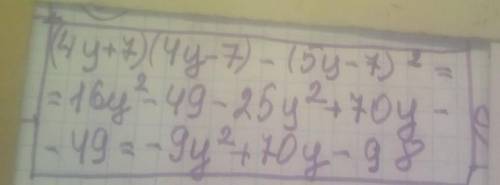 (4y+7)(4y-7)-(5y-7)²=
=16y²-49-25y²+70y-
-49=-9y²+70y-98